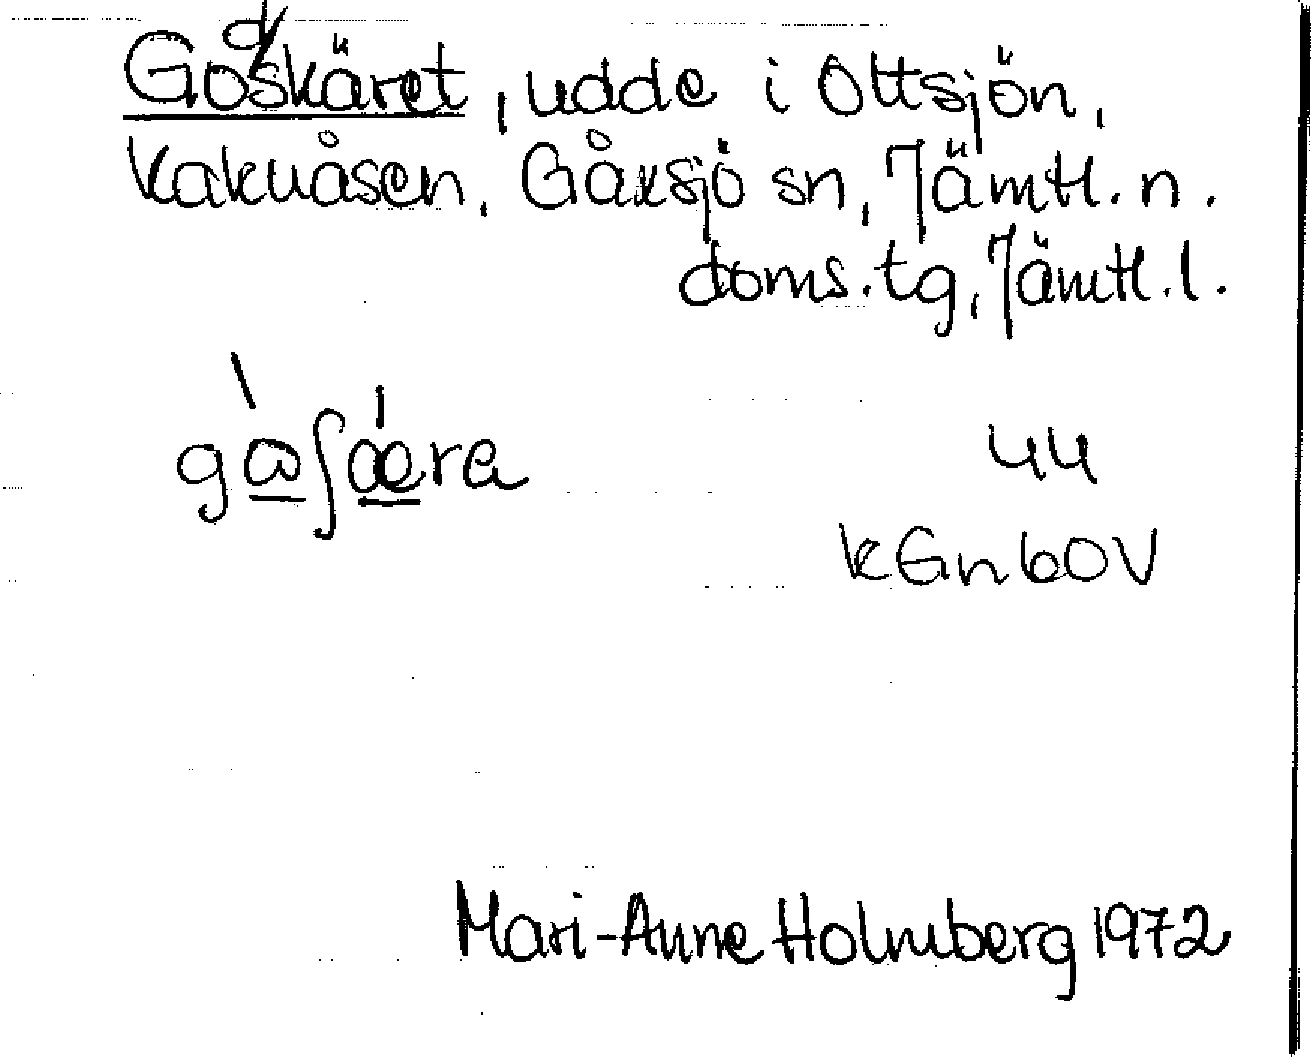 Godskäret, udde i Ottsjön,
Kakuåsen, Gåxsjö sn, Jämtl. n.
doms.tg, Jämtl. l.
gɷ̀ʃǽra 44
kGn60V
Mari-Anne Holmberg 1972